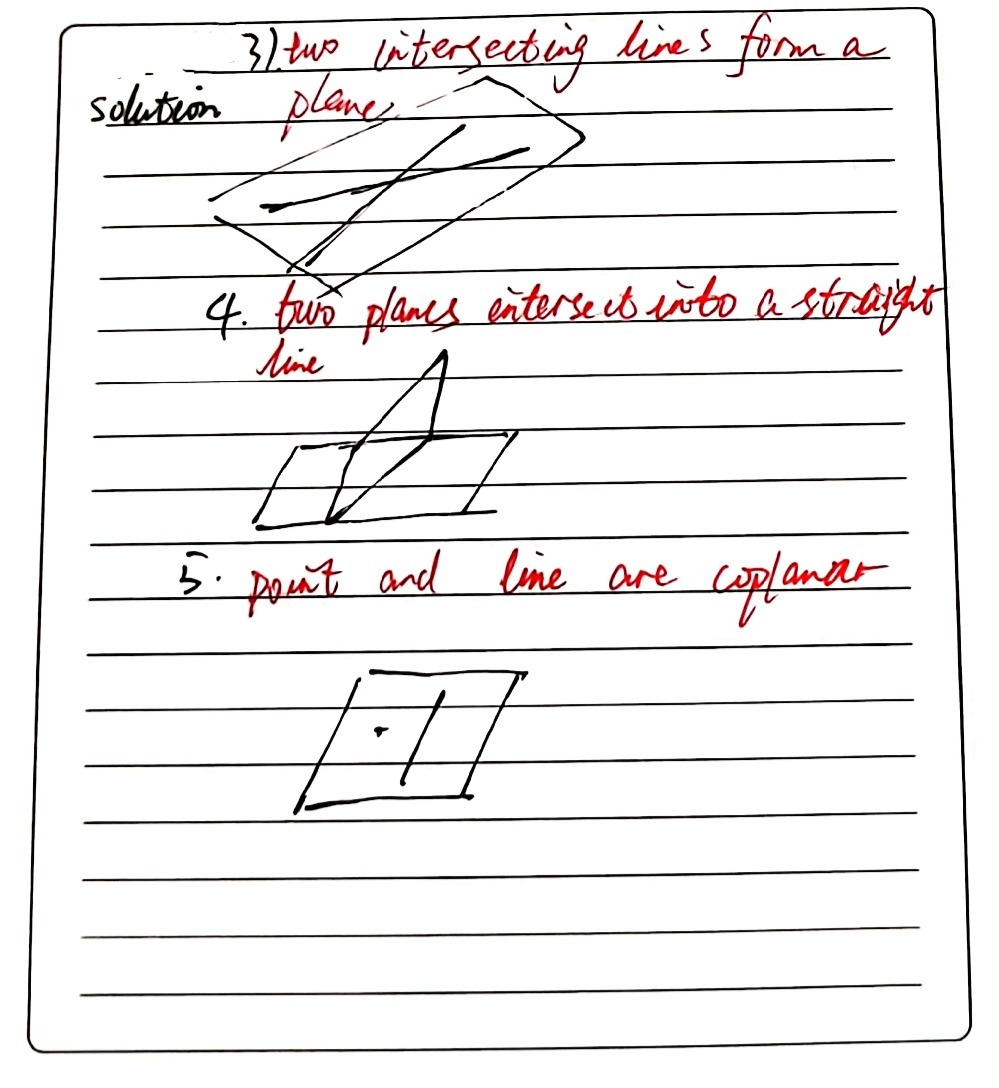 3). two intersecting lines form a
solution plane,
4. two planes intersect into a straight
line
5. point and line are coplanar